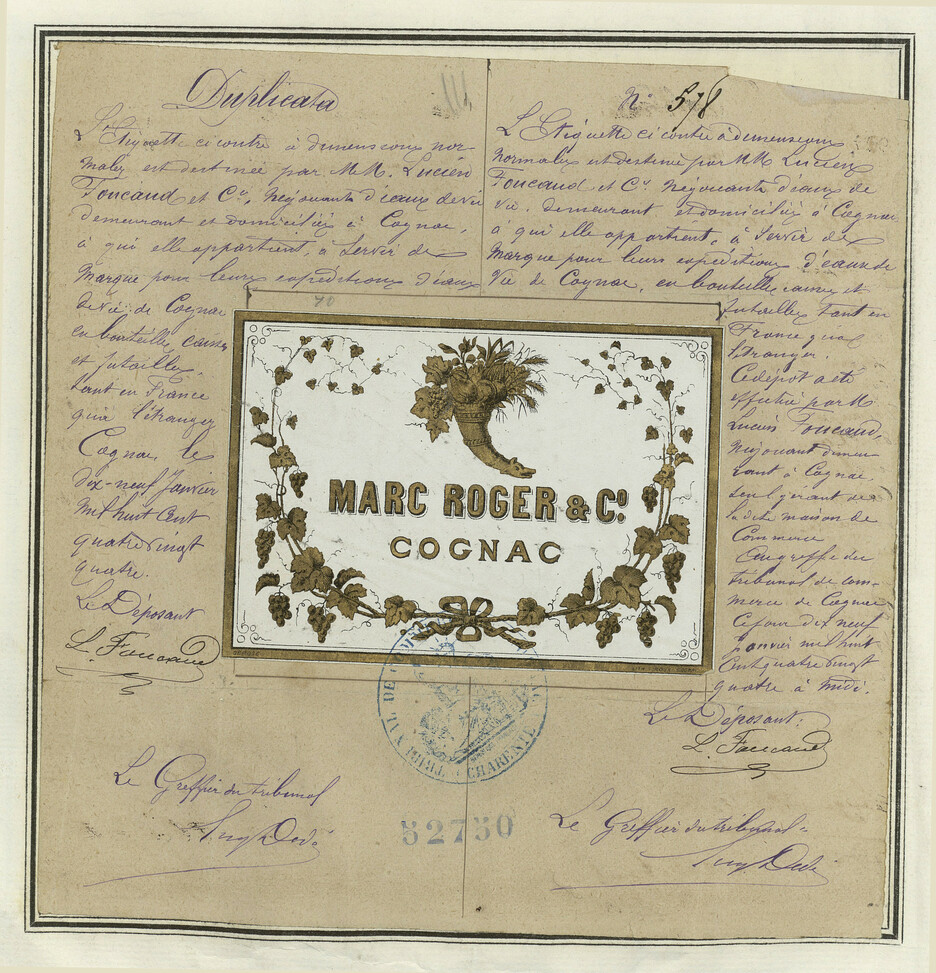 Duplicata
L'Etiquette ci contre à dimensions nor-
males est destinée par M.M. Lucien
Foucaud et Cie, Négociants d'eaux de vie
demeurant et domiciliés à Cognac,
à qui elle appartient, à Servir de
Marque pour leurs expéditions d'eaux
de vie de Cognac
en bouteilles, caisses
et futailles,
tant en France
qu'à l'étranger
Cognac, le
dix-neuf Janvier
mil huit cent
quatre vingt
quatre.
Le Déposant
L. Foucaud
Le Greffier du tribunal
No 578
L'Etiquette ci contre à dimensions
Normales est destinée par M M Lucien
Foucaud et Cie Négociants d'eaux de
Vie. demeurant et domiciliés à Cognac
à qui elle appartient, à Servir de
Marque pour leurs expéditions d'eaux de
Vie de Cognac, en bouteilles caisses et
futailles tant en
France qu'à
l'étranger.
Ce dépôt a été
effectué par M
Lucien Foucaud,
Négociant demeu-
rant à Cognac,
seul gérant de
la dite maison de
Commerce
Au greffe du
tribunal de com-
merce de Cognac
Ce jour dix neuf
janvier mil huit
cent quatre vingt
quatre à midi.
Le Déposant:
L. Foucaud
Le Greffier du tribunal
70
MARC ROGER & Co.
COGNAC
TRIBAL DE COM
CHARENTE
52730